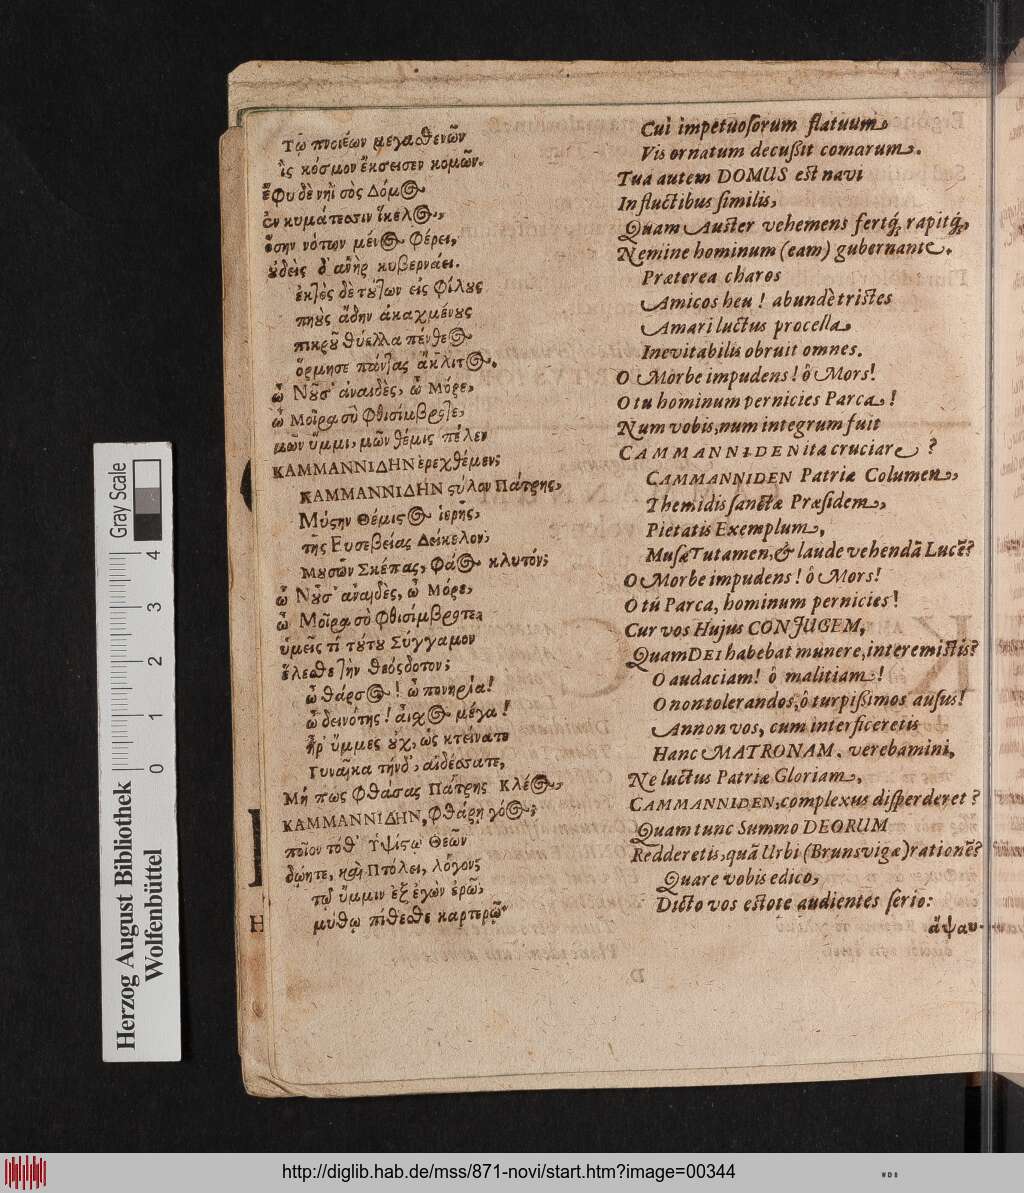 Τῷ πνοιέων μεγαθενῶν
ἲς κόσμον ἔκσεισεν κομῶν.
ἔφυ δὲ νηῒ σὸς Δόμος
ἐν κυμάτεσσιν ἴκελος,
ὅσην νότων μένος φέρει,
οὐδεὶς δ' ἀνὴρ κυβερνάει.
ἐκτὸς δὲ τούτων εἰς φίλους
πηοὺς ἄδην ἀκαχμένους
πικροῦ θύελλα πένθεος
ὅρμησε πάντας ἄκλιτος.
ὦ Νοῦσ' ἀναιδὲς, ὦ Μόρε,
ὦ Μοῖρα σὺ φθισίμβροτε,
μῶν ὔμμι, μῶν θέμις πέλεν
ΚΑΜΜΑΝΝΙΔΗΝ ἐρεχθέμεν;
ΚΑΜΜΑΝΝΙΔΗΝ στύλον Πάτρης,
Μύσην Θέμιστος ἱερῆς,
τῆς Ευσεβείας Δείκελον;
Μουσῶν Σκέπας, Φάος κλυτόν;
ὦ Νοῦσ' ἀναιδὲς, ὦ Μόρε,
ὦ Μοῖρα σὺ Φθισίμβροτε,
ὑμεῖς τί τούτου Σύγγαμον
ἕλεσθε τὴν θεόσδοτον;
ὦ θάρσος! ὦ πονηρία!
ὦ δεινότης! αἶσχος μέγα!
ἦρ' ὔμμες οὐχ, ὡς κτείνατε
Γυναῖκα τήνδ', αἰδέσσατε,
Μή πως Φθάσας Πάτρης Κλέος,
ΚΑΜΜΑΝΝΙΔΗΝ, Φθάρη γόος;
ποῖον τόθ' Ὑψίστῳ Θεῶν
δῴητε, καὶ Πτόλει, λόγον;
τῷ ὔμμιν ἐξ ἐγὼν ἐρῶ,
μύθῳ πίθεσθε καρτερῷ·
Cui impetuosorum flatuum
Vis ornatum decußit comarum.
Tua autem DOMUS est navi
In fluctibus similis,
Quam Auster vehemens fertq́, rapitq́,
Nemine hominum (eam) gubernante.
Præterea charos
Amicos heu! abundè tristes
Amari luctus procella
Inevitabilis obruit omnes.
O Morbe impudens! ô Mors!
O tu hominum pernicies Parca!
Num vobis, num integrum fuit
CAMMANNIDEN ita cruciare?
CAMMANNIDEN Patriæ Columen,
Themidis sanctæ Præsidem,
Pietatis Exemplum,
Musæ Tutamen, & laude vehendã Lucẽ?
O Morbe impudens! ô Mors!
O tú Parca, hominum pernicies!
Cur vos Hujus CONJUGEM,
Quam DEI habebat munere, interemistis?
O audaciam! ô malitiam!
O non tolerandos, ô turpißimos ausus!
Annon vos, cum interficeretis
Hanc MATRONAM, verebamini,
Ne luctus Patriæ Gloriam,
CAMMANNIDEN, complexus disperderet?
Quam tunc Summo DEORUM
Redderetis, quã Urbi (Brunsvigæ) rationẽ?
Quare vobis edico,
Dicto vos estote audientes serio:
ἄψαυ-
Gray Scale
4
3
2
1
0
Herzog August Bibliothek
Wolfenbüttel
http://diglib.hab.de/mss/871-novi/start.htm?image=00344